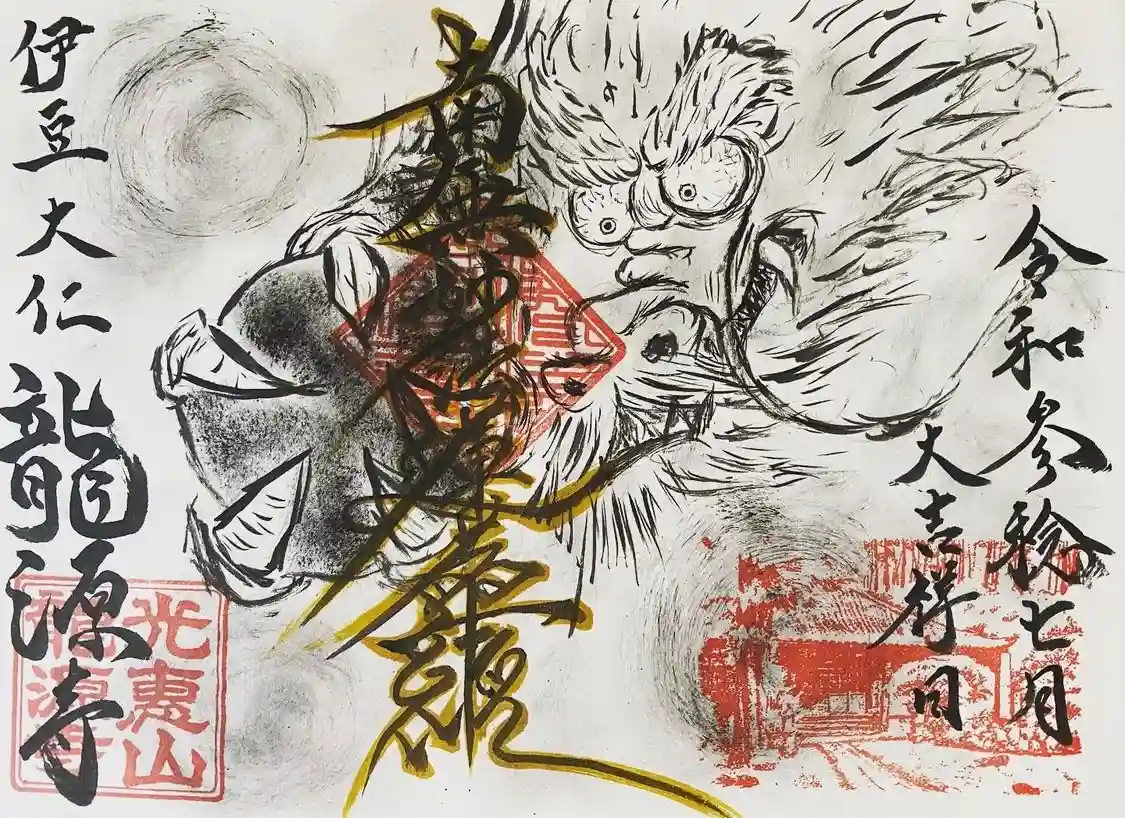 令和参稔七月
大吉祥日
南無妙法蓮華経
伊豆大仁
龍源寺
光恵山
龍源寺